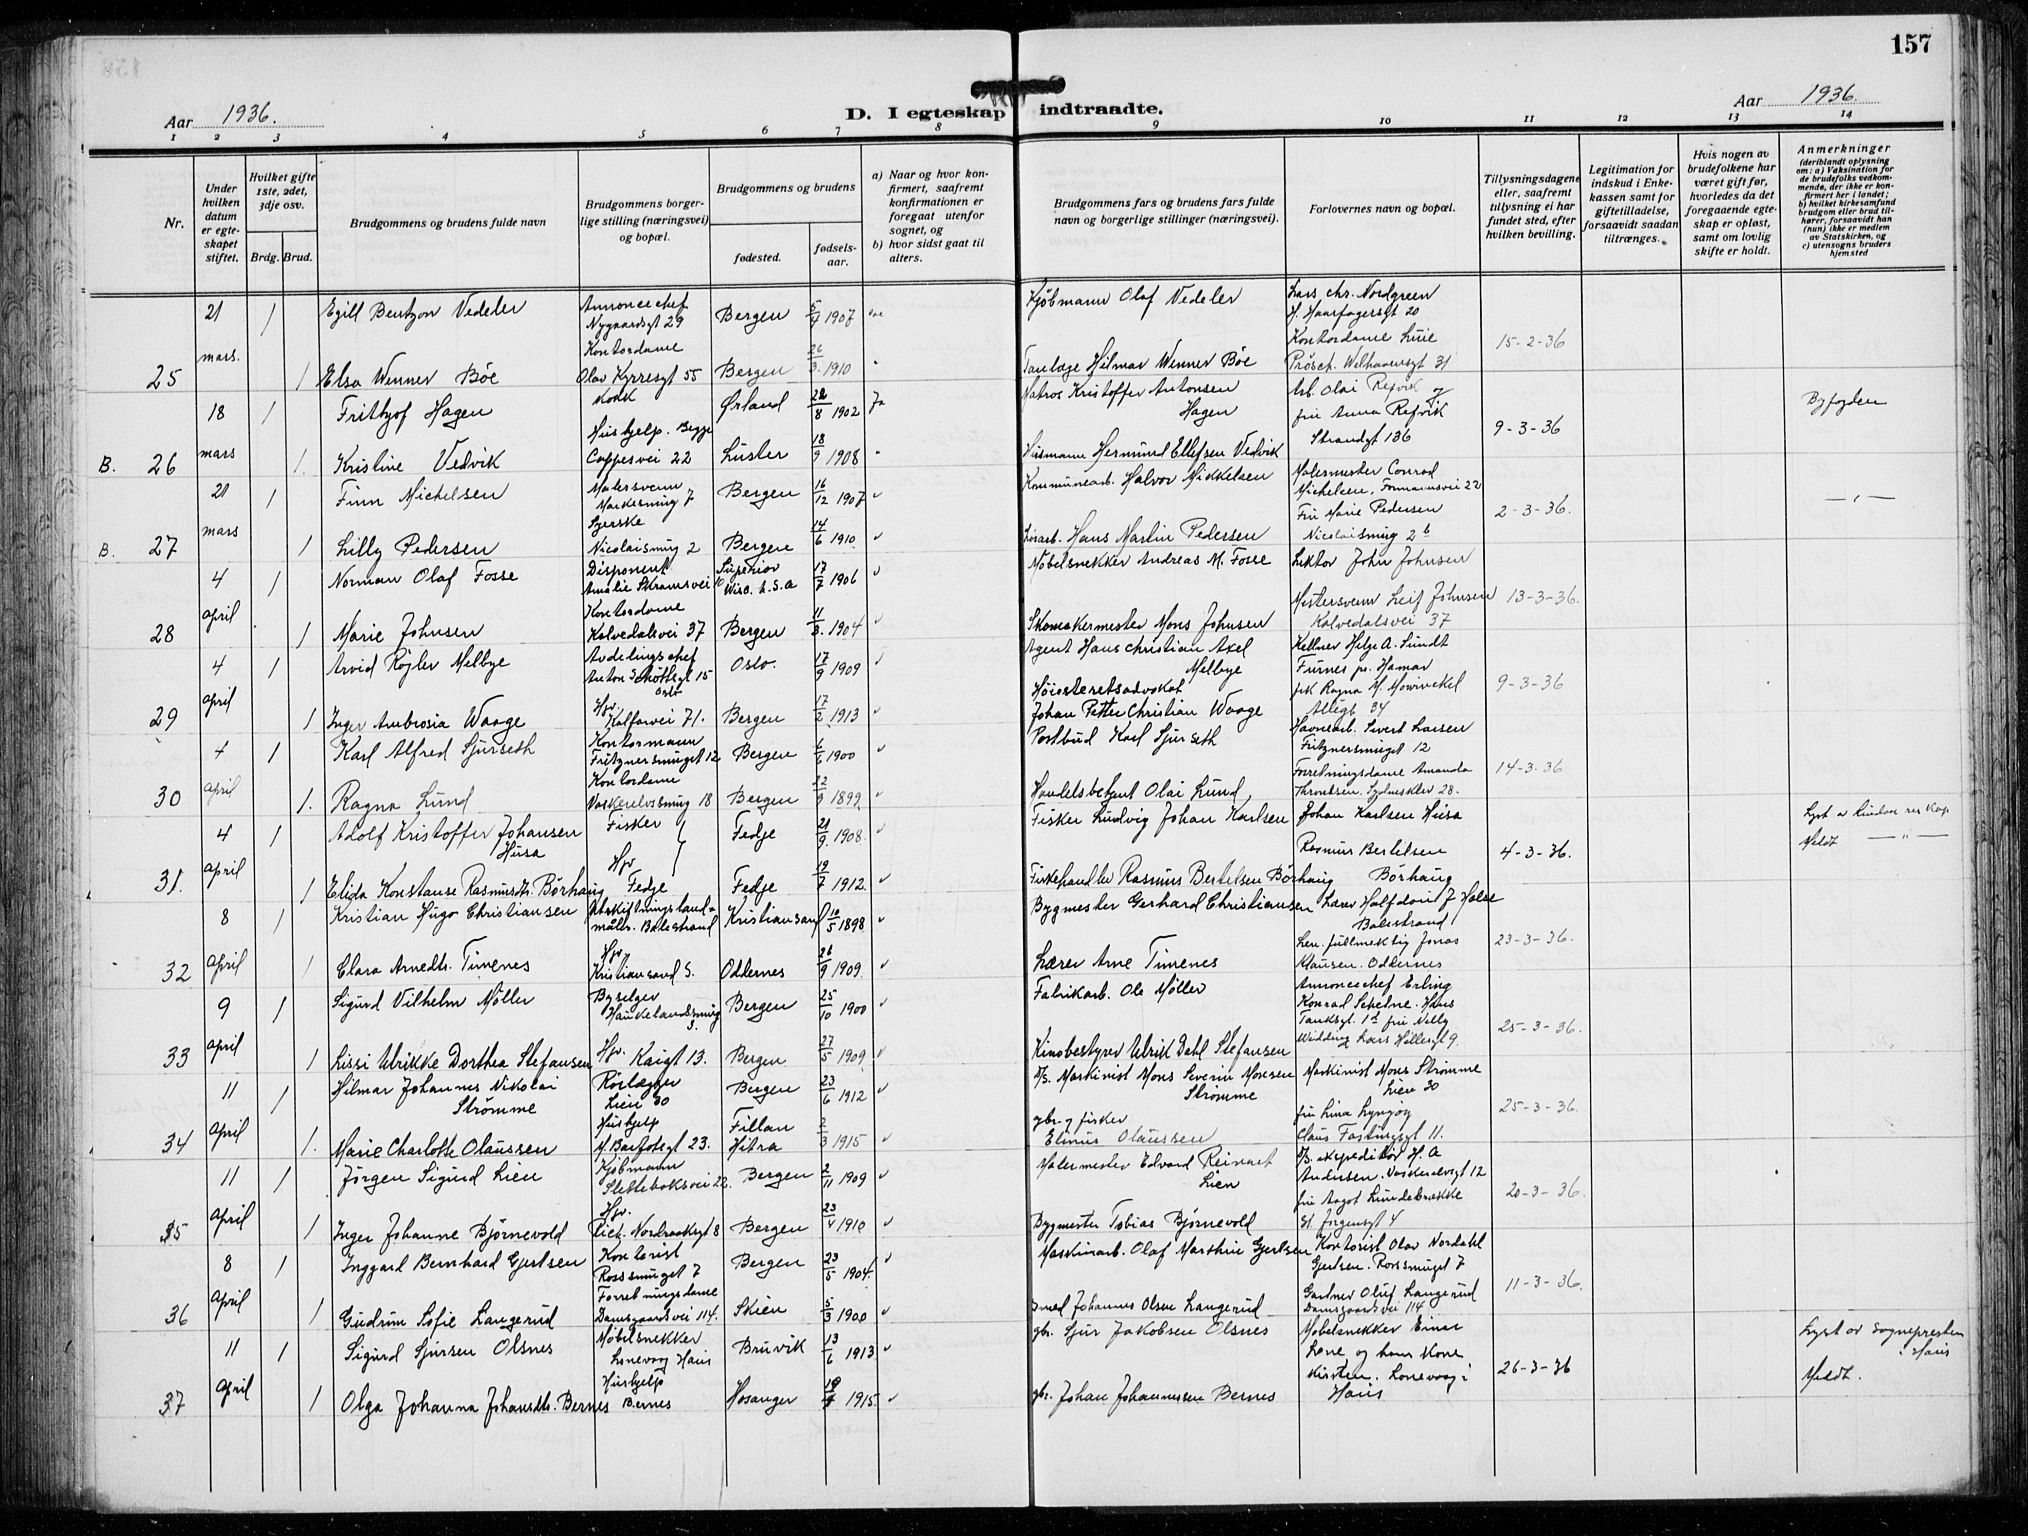 157
Aar 1936.
D. I egteskap indtraadte.
Aar 1936.
1 2 3 4 5 6 7 8 9 10 11 12 13 14
Nr.
Under hvilken datum er egteskapet stiftet.
Hvilket gifte 1ste, 2det, 3dje osv.
Brdg. Brud.
Brudgommens og brudens fulde navn
Brudgommens borgerlige stilling (næringsvei) og bopæl.
Brudgommens og brudens
fødested.
fødselsaar.
a) Naar og hvor konfirmert, saafremt konfirmationen er foregaat utenfor sognet, og
b) hvor sidst gaat til alters.
Brudgommens fars og brudens fars fulde navn og borgerlige stillinger (næringsvei).
Forlovernes navn og bopæl.
Tillysningsdagene eller, saafremt tillysning ei har fundet sted, efter hvilken bevilling.
Legitimation for indskud i Enkekassen samt for giftetilladelse, forsaavidt saadan tiltrænges.
Hvis nogen av brudefolkene har været gift før, hvorledes da det foregaaende egteskap er opløst, samt om lovlig skifte er holdt.
Anmerkninger
(deriblandt oplysning om: a) Vaksination for de brudefolks vedkommende, der ikke er konfirmert her i landet; b) hvilket kirkesamfund brudgom eller brud tilhører, forsaavidt han (hun) ikke er medlem av Statskirken, og c) utensogns bruders hjemsted
21 1 Egill Bentzon Vedeler Annoncechef Nygaardsgt 29 Bergen 5/4 1907 Kjøbmann Olaf Vedeler Lars Chr. Nordgreen H. Haarfagersgt 20
25 mars. 1 Elsa Wenner Böe Kontordame Olav Kyrresgt 55 Bergen 26/3 1910 Tanlæge Hilmar Wenner Böe Kontordame Prösch. Welhavensgt 31 15-2-36
18 1 Frithjof Hagen Kokk Ørland 22/8 1902 Ja Matros Kristoffer Antonsen Hagen Arb. Olai Refvik og Byfogden
B. 26 mars 1. Kristine Vedvik Hushjelp. Begge Coppesvei 22 Luster 18/9 1908 Husmann Hermund Ellefsen Vedvik fru Anna Refvik Strandgt 136 9-3-36
21 1 Finn Michelsen Malersvenn Markesmug 7 Bergen 16/12 1907 Kommunearb. Halvor Mikkelsen Malermester Conrad Michelsen, Formannsvei 22 —"—
B. 27 mars 1 Lilly Pedersen Syerske Nicolaismug 2 Bergen 14/6 1910 Hans Martin Pedersen Fru Marie Pedersen Nicolaismug 2 b 2-3-36.
4 1 Norman Olaf Fosse Disponent Amalie Skramsvei 10 Superior Wisc. U.S.A 17/7 1906 Møbelsnekker Andreas M. Fosse Lektor John Johnsen
28 april 1 Marie Johnsen Kontordame Kalvedalsvei 37 Bergen 11/3. 1904 Skomakermester Mons Johnsen Mestersvenn Leif Johnsen Kalvedalsvei 37 13-3-36.
4 1 Arvid Røjler Melbye Avdelingschef Anton Schøttsgt 15 Oslo Oslo. 17/9 1909 Agent Hans Christian Axel Melbye Kellner Helge A. Sundt Furnes pr. Hamar
29 april 1 Inger Ambrosia Waage Hjv. Kalfarvei 71. Bergen 17/2 1913 Høiesteretsadvokat Johan Petter Christian Waage frk Ragna M. Mowinckel Allégt 34 9-3-36
4 1 Karl Alfred Sjurseth Kontormann Fritznersmuget 12 Bergen 6/6 1900 Postbud Karl Sjurseth Havnearb. Sivert Larsen Fritznersmuget 12
30 april 1. Ragna Lund Kontordame Vaskerelvsmug 18 Bergen 22/9 1899 Handelsbetjent Olai Lund Forretningsdame Amanda Throntsen. Sydneskler 28. 14-3-36
4 1 Adolf Kristoffer Johansen Husa Fisker Fedje 21/9. 1908. Fisker Ludvig Johan Karlsen Johan Karlsen Husa
31. april 1 Elida Konstanse Rasmusdtr. Börhaug Hjv Fedje Fedje 19/7 1912. Fiskehandler Rasmus Bertelsen Börhaug Rasmus Bertelsen Börhaug 4-3-36. Meldt —"—
8 1 Kristian Hugo Christiansen Utskiftningslandmåler. Balestrand Kristiansand 10/5 1898 Bygmester Gerhard Christiansen Lærer Halfdan J Halse Balestrand
32 april 1 Clara Arnedtr. Timenes Hjv. Kristiansand S. Oddernes 26/9 1909 Lærer Arne Timenes Len. fullmektig Jonas Klausen. Oddernes 23-3-36.
9 1 Sigurd Vilhelm Møller Byselger Haukelandsmug 3. Bergen 25/10 1900 Fabrikarb. Ole Møller Annoncechef Erling Konrad Schedne. Hans Tanksgt. 1
33 april 1 Lissi Ulrikke Dorthea Stefansen Hjv. Kaigt 13. Bergen 27/5 1909. Kinobestyrer Ulrik Dahl Stefansen fru Nelly Wedding Lars Hillesgt 9. 25-3-36.
11 1 Hilmar Johannes Nikolai Strømme Rørlægger Lien 30 Bergen 23/6 1912 Maskinist Mons Severin Monsen Strømme Maskinist Mons Strømme Lien 30
34 april 1. Marie Charlotte Olaussen Hushjelp M. Barfotsgt 23. Fillan Hitra 2/3 1915 gbr. og fisker Elinus Olaussen fru Lina Lyngøy Claus Fastingsgt 11. 25-3-36.
11 1 Jørgen Sigurd Lien Kjøbmann Slettebaksvei 22. Bergen 2/11 1909 Malermester Edvard Reinart Lien ekspeditør H. A Andersen. Vaskerelvsgt 12
35 april 1 Inger Johanne Bjørnevold Hjv. Rick. Nordraaksgt 8 Bergen 23/4 1910 Bygmester Tobias Bjørnevold fru Aagot Lundebrække St. Jørgensgt 4 20-3-36.
8 1 Inggard Bernhard Gjertsen Kontorist Rossmuget 7 Bergen 23/5 1904. Maskinarb. Olaf Marthin Gjertsen Kontorist Olav Nordahl Gjertsen. Rossmuget 7
36 april 1 Gudrun Sofie Langerud Forretningsdame Damsgaardsvei 114. Skien 5/3 1900 Smed Johannes Olsen Langerud Gartner Oluf Langerud Damsgaardsvei 114 11-3-36.
11 1 Sigurd Sjursen Olsnes Møbelsnekker Lonevaag Haus Bruvik 13/6 1913 gbr. Sjur Jakobsen Olsnes Møbelsnekker Einar Lone og hans Kone Lyst av Sognepresten i Haus
37 april 1 Olga Johanna Johansdtr. Bernes Hushjelp Bernes Hosanger 1915. gbr. Johan Johannessen Bernes Kirsten. Lonevaag i Haus 26-3-36 Meldt.